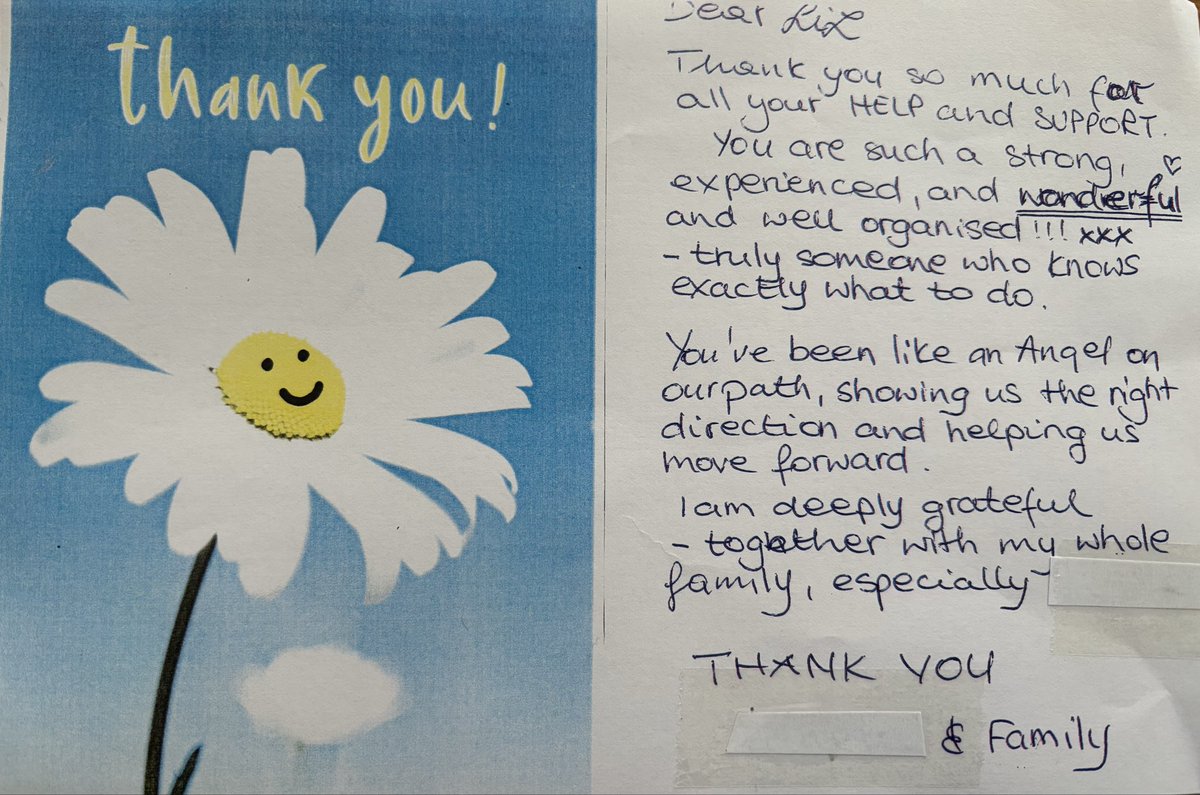 thank you!
Dear Liz
Thank you so much for
all your HELP and SUPPORT.
You are such a strong, ♡
experienced, and wonderful
and well organised!!! xxx
- truly someone who knows
exactly what to do.
You've been like an Angel on
our path, showing us the right
direction and helping us
move forward.
I am deeply grateful
- together with my whole
family, especially
THANK YOU
& Family